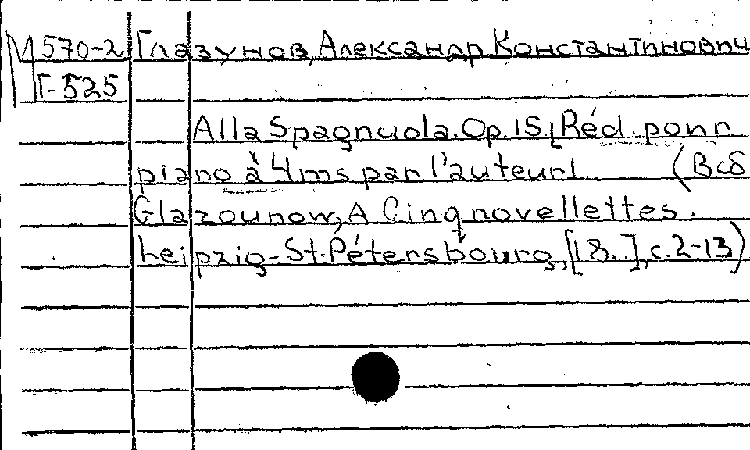 М 570-2 Глазунов, Александр Константинович
Г-525
Alla Spagnuola. Op.15. [Réd. pour
piano à 4 ms par l'auteur]. (В сб
Glazounow, A. Cinq novellettes.
Leipzig-St.Pétersbourg, [18..], с.2-13)